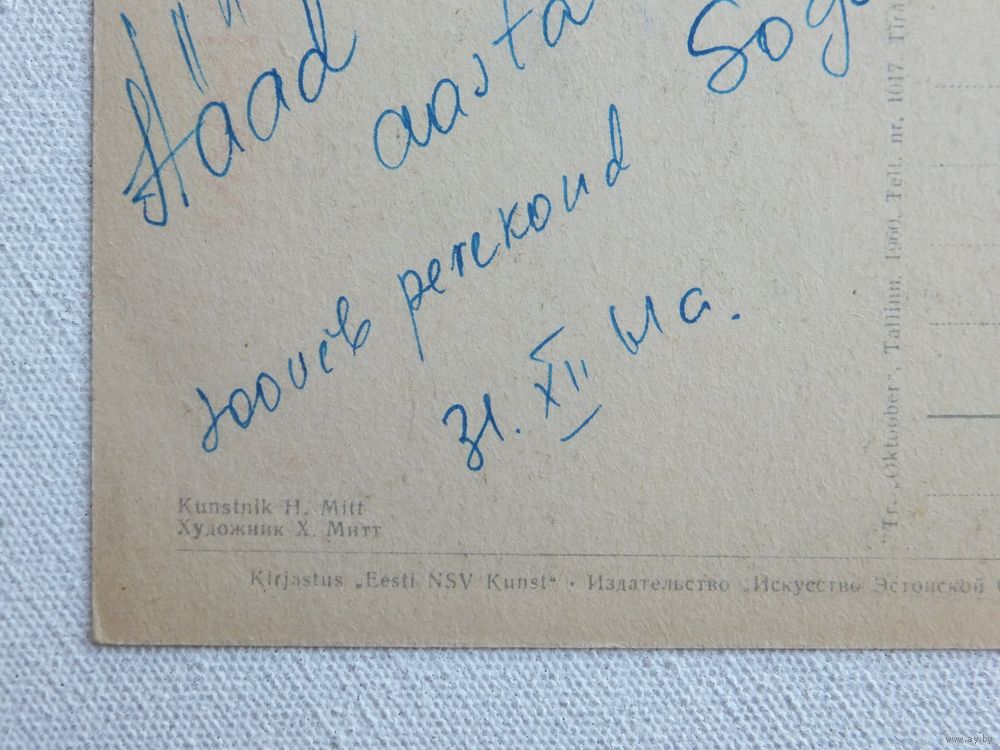 Hääd
aasta
soovib perekond
31. XII 61a.
Kunstnik H. Mitt
Художник Х. Митт
Kirjastus „Eesti NSV Kunst“ · Издательство „Искусство Эстонской
Tr. „Oktoober“, Tallinn, 1960. Tell. nr. 1017.
www.ay.by